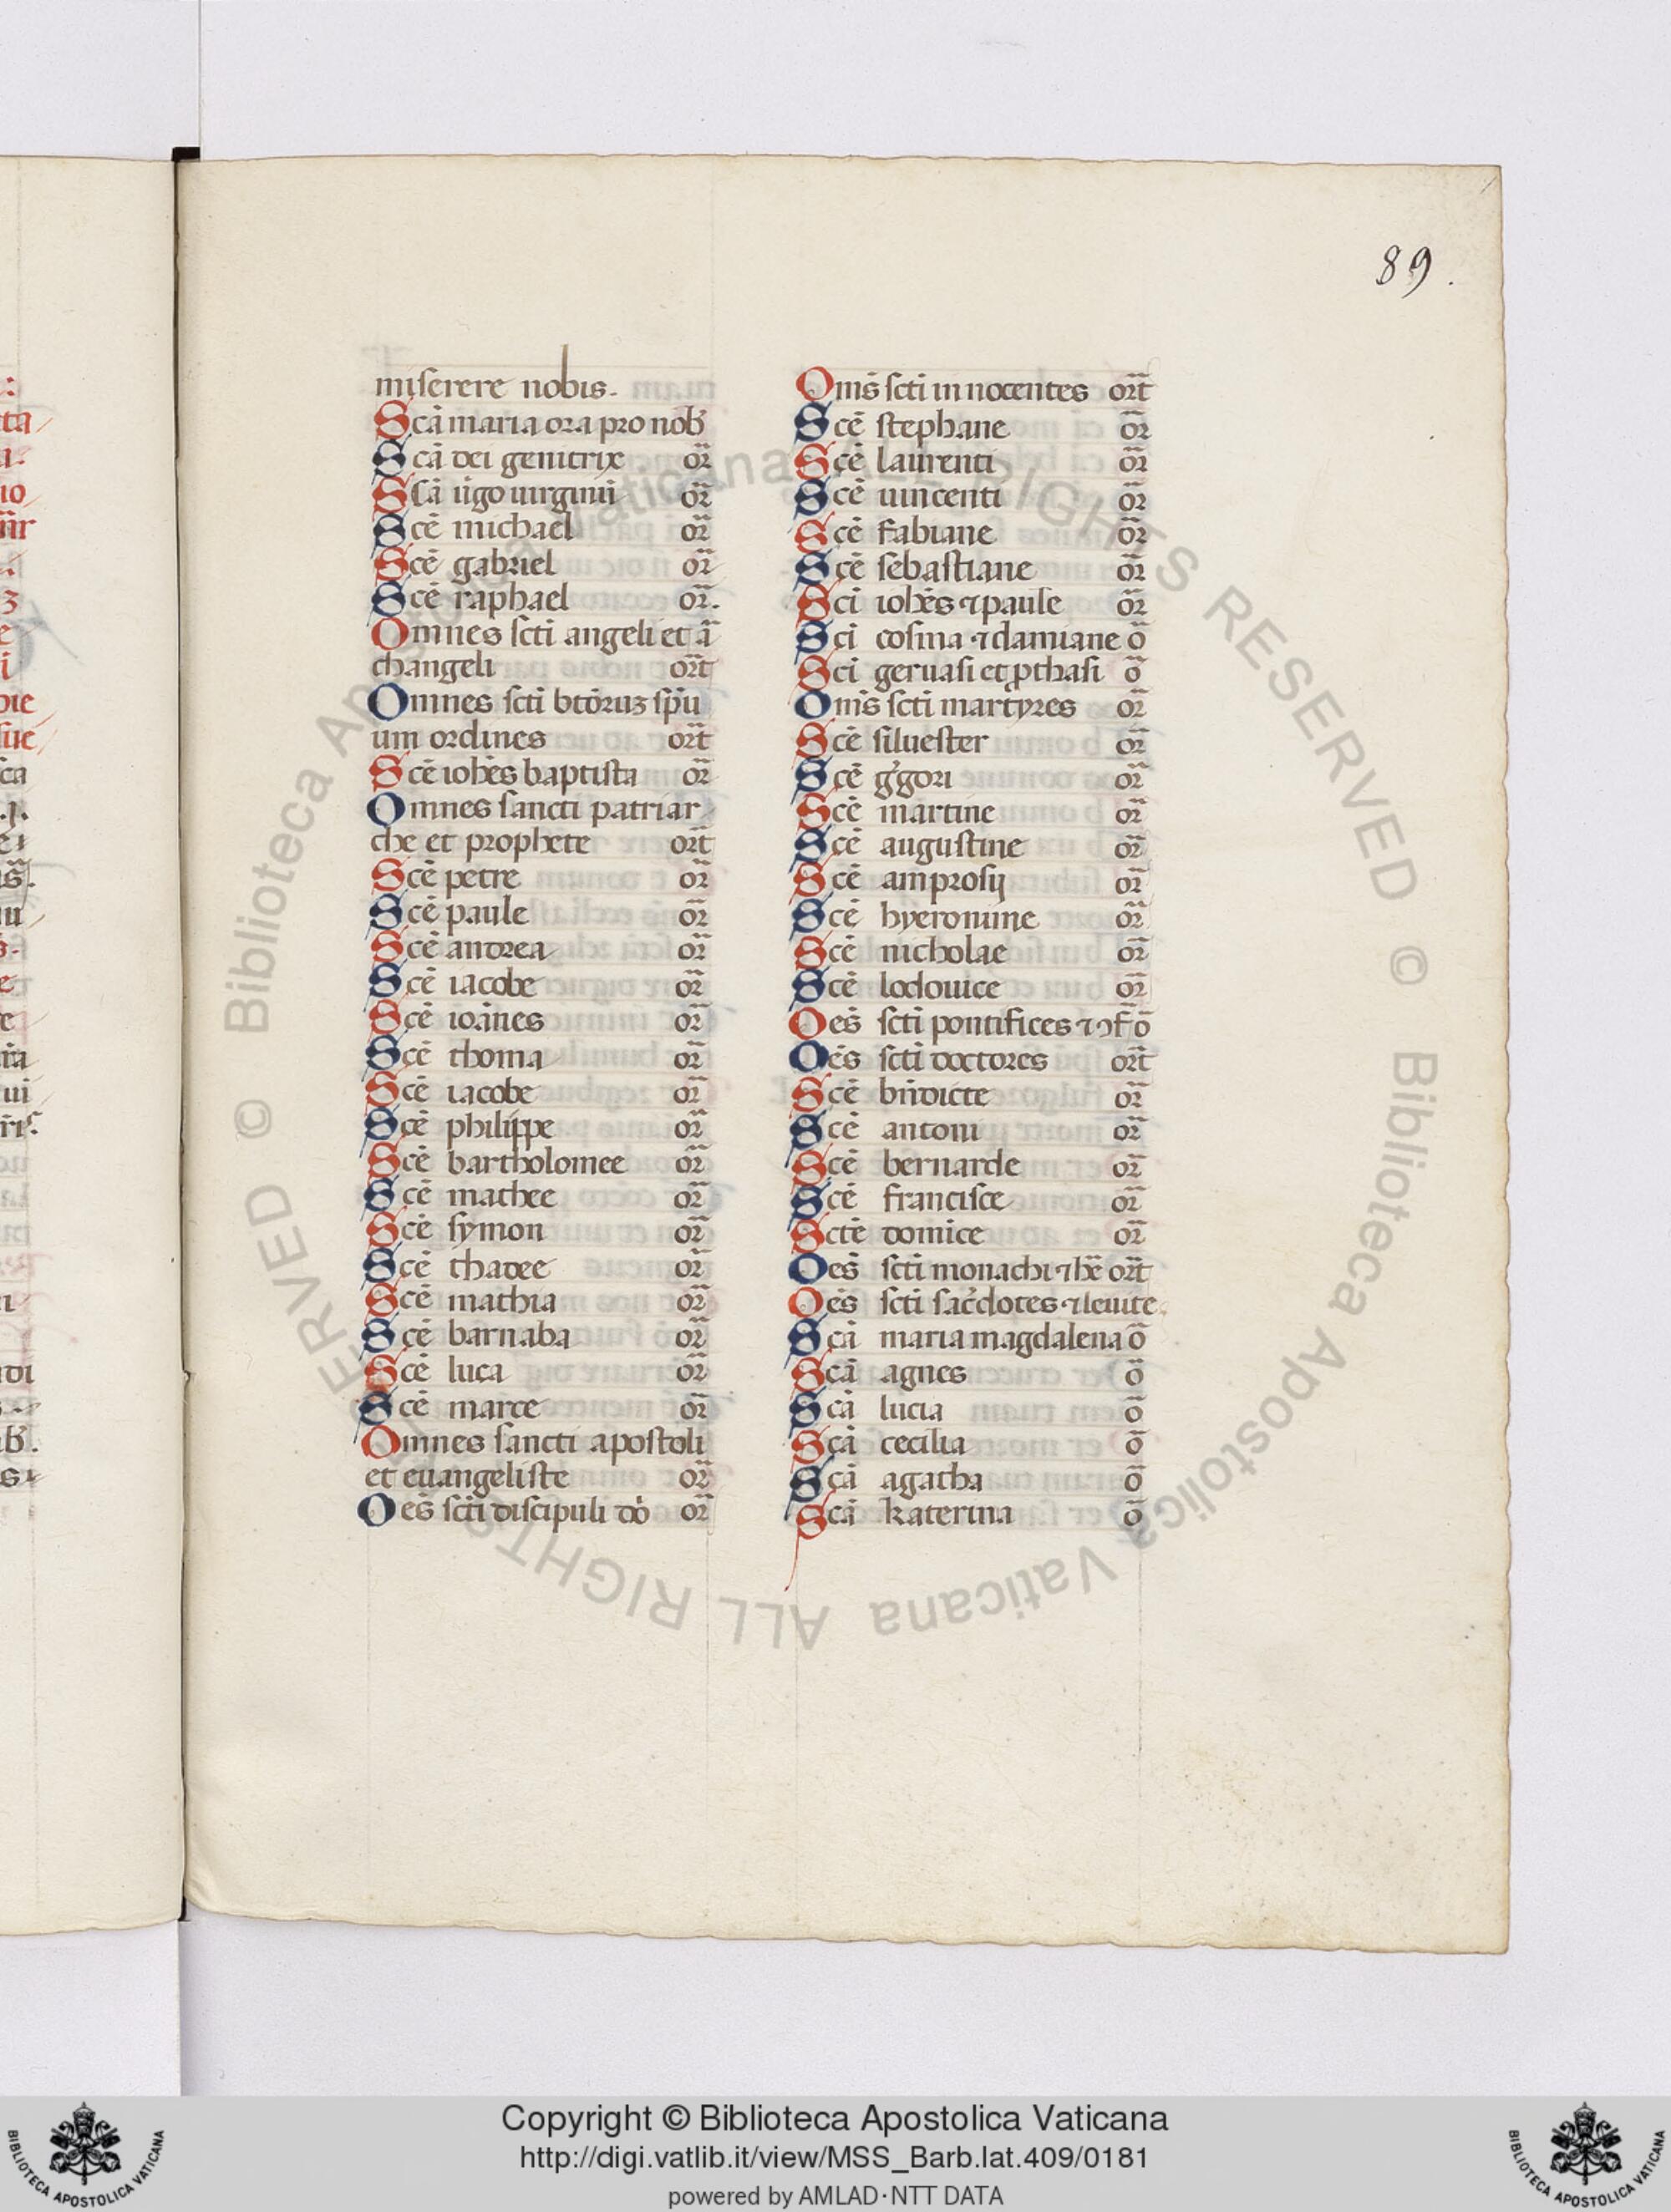 89.
miserere nobis.
Scā maria ora pro nob
Scā dei genitrix or̄
Scā u̇go uirginū or̄
Scē michael or̄
Scē gabriel or̄
Scē raphael or̄.
Omnes scti angeli et ā
changeli or̄t
Omnes scti btōruʒ sp̄u
um ordines or̄t
Scē iohēs baptista or̄
Omnes sancti patriar
che et prophete or̄t
Scē petre or̄
Scē paule or̄
Scē andrea or̄
Scē iacobe or̄
Scē ioānes or̄
Scē thoma or̄
Scē iacobe or̄
Scē philippe or̄
Scē bartholomee or̄
Scē mathee or̄
Scē symon or̄
Scē thadee or̄
Scē mathia or̄
Scē barnaba or̄
Scē luca or̄
Scē marce or̄
Omnes sancti apostoli
et euangeliste or̄
Oēs scti discipuli dō or̄
Om̄s scti innocentes or̄t
Scē stephane or̄
Scē laurenti or̄
Scē uincenti or̄
Scē fabiane or̄
Scē sebastiane or̄
Sci iohēs ⁊ paule or̄
Sci cosma ⁊ damiane ō
Sci geruasi et ꝓthasi ō
Om̄s scti martyres or̄
Scē siluester or̄
Scē g̍gori or̄
Scē martine or̄
Scē augustine or̄
Scē amprosij or̄
Scē hyeronime or̄
Scē nicholae or̄
Scē lodouice or̄
Oēs scti pontifices ⁊ ↄf̄ ō
Oēs scti doctores or̄t
Scē bn̄dicte or̄
Scē antoni or̄
Scē bernarde or̄
Scē francisce or̄
Sctē domice or̄
Oēs scti monachi ⁊ hē or̄t
Oēs scti sac̄dotes ⁊ leuite
Scā maria magdalena ō
Scā agnes ō
Scā lucia ō
Scā cecilia ō
Scā agatha ō
Scā katerina ō
© Biblioteca Apostolica Vaticana ALL RIGHTS RESERVED © Biblioteca Apostolica Vaticana ALL RIGHTS RESERVED
Copyright © Biblioteca Apostolica Vaticana
http://digi.vatlib.it/view/MSS_Barb.lat.409/0181
powered by AMLAD·NTT DATA
BIBLIOTECA APOSTOLICA VATICANA
BIBLIOTECA APOSTOLICA VATICANA